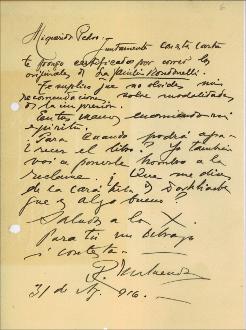 Mi querido Pedro: Juntamente con esta carta
te pongo certificados por correo los
originales de La
Te suplico que no olvides mis
recomendaciones sobre modalidades
de la impresión.
En tus manos encomiendo mi
espíritu.
Para cuando podrá apa-
recer el libro? Yo también
voi a ponerle hombro a la
reclame. ¿Que me dices
de la carátula de
que es algo bueno?
Saludos a la X.
Para tí un abrazo
i contesta.
31 de 916.